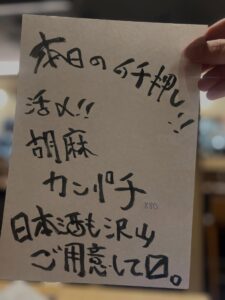 本日のイチ押し!!
活〆!!
胡麻
カンパチ
日本酒も沢山
ご用意して〼。